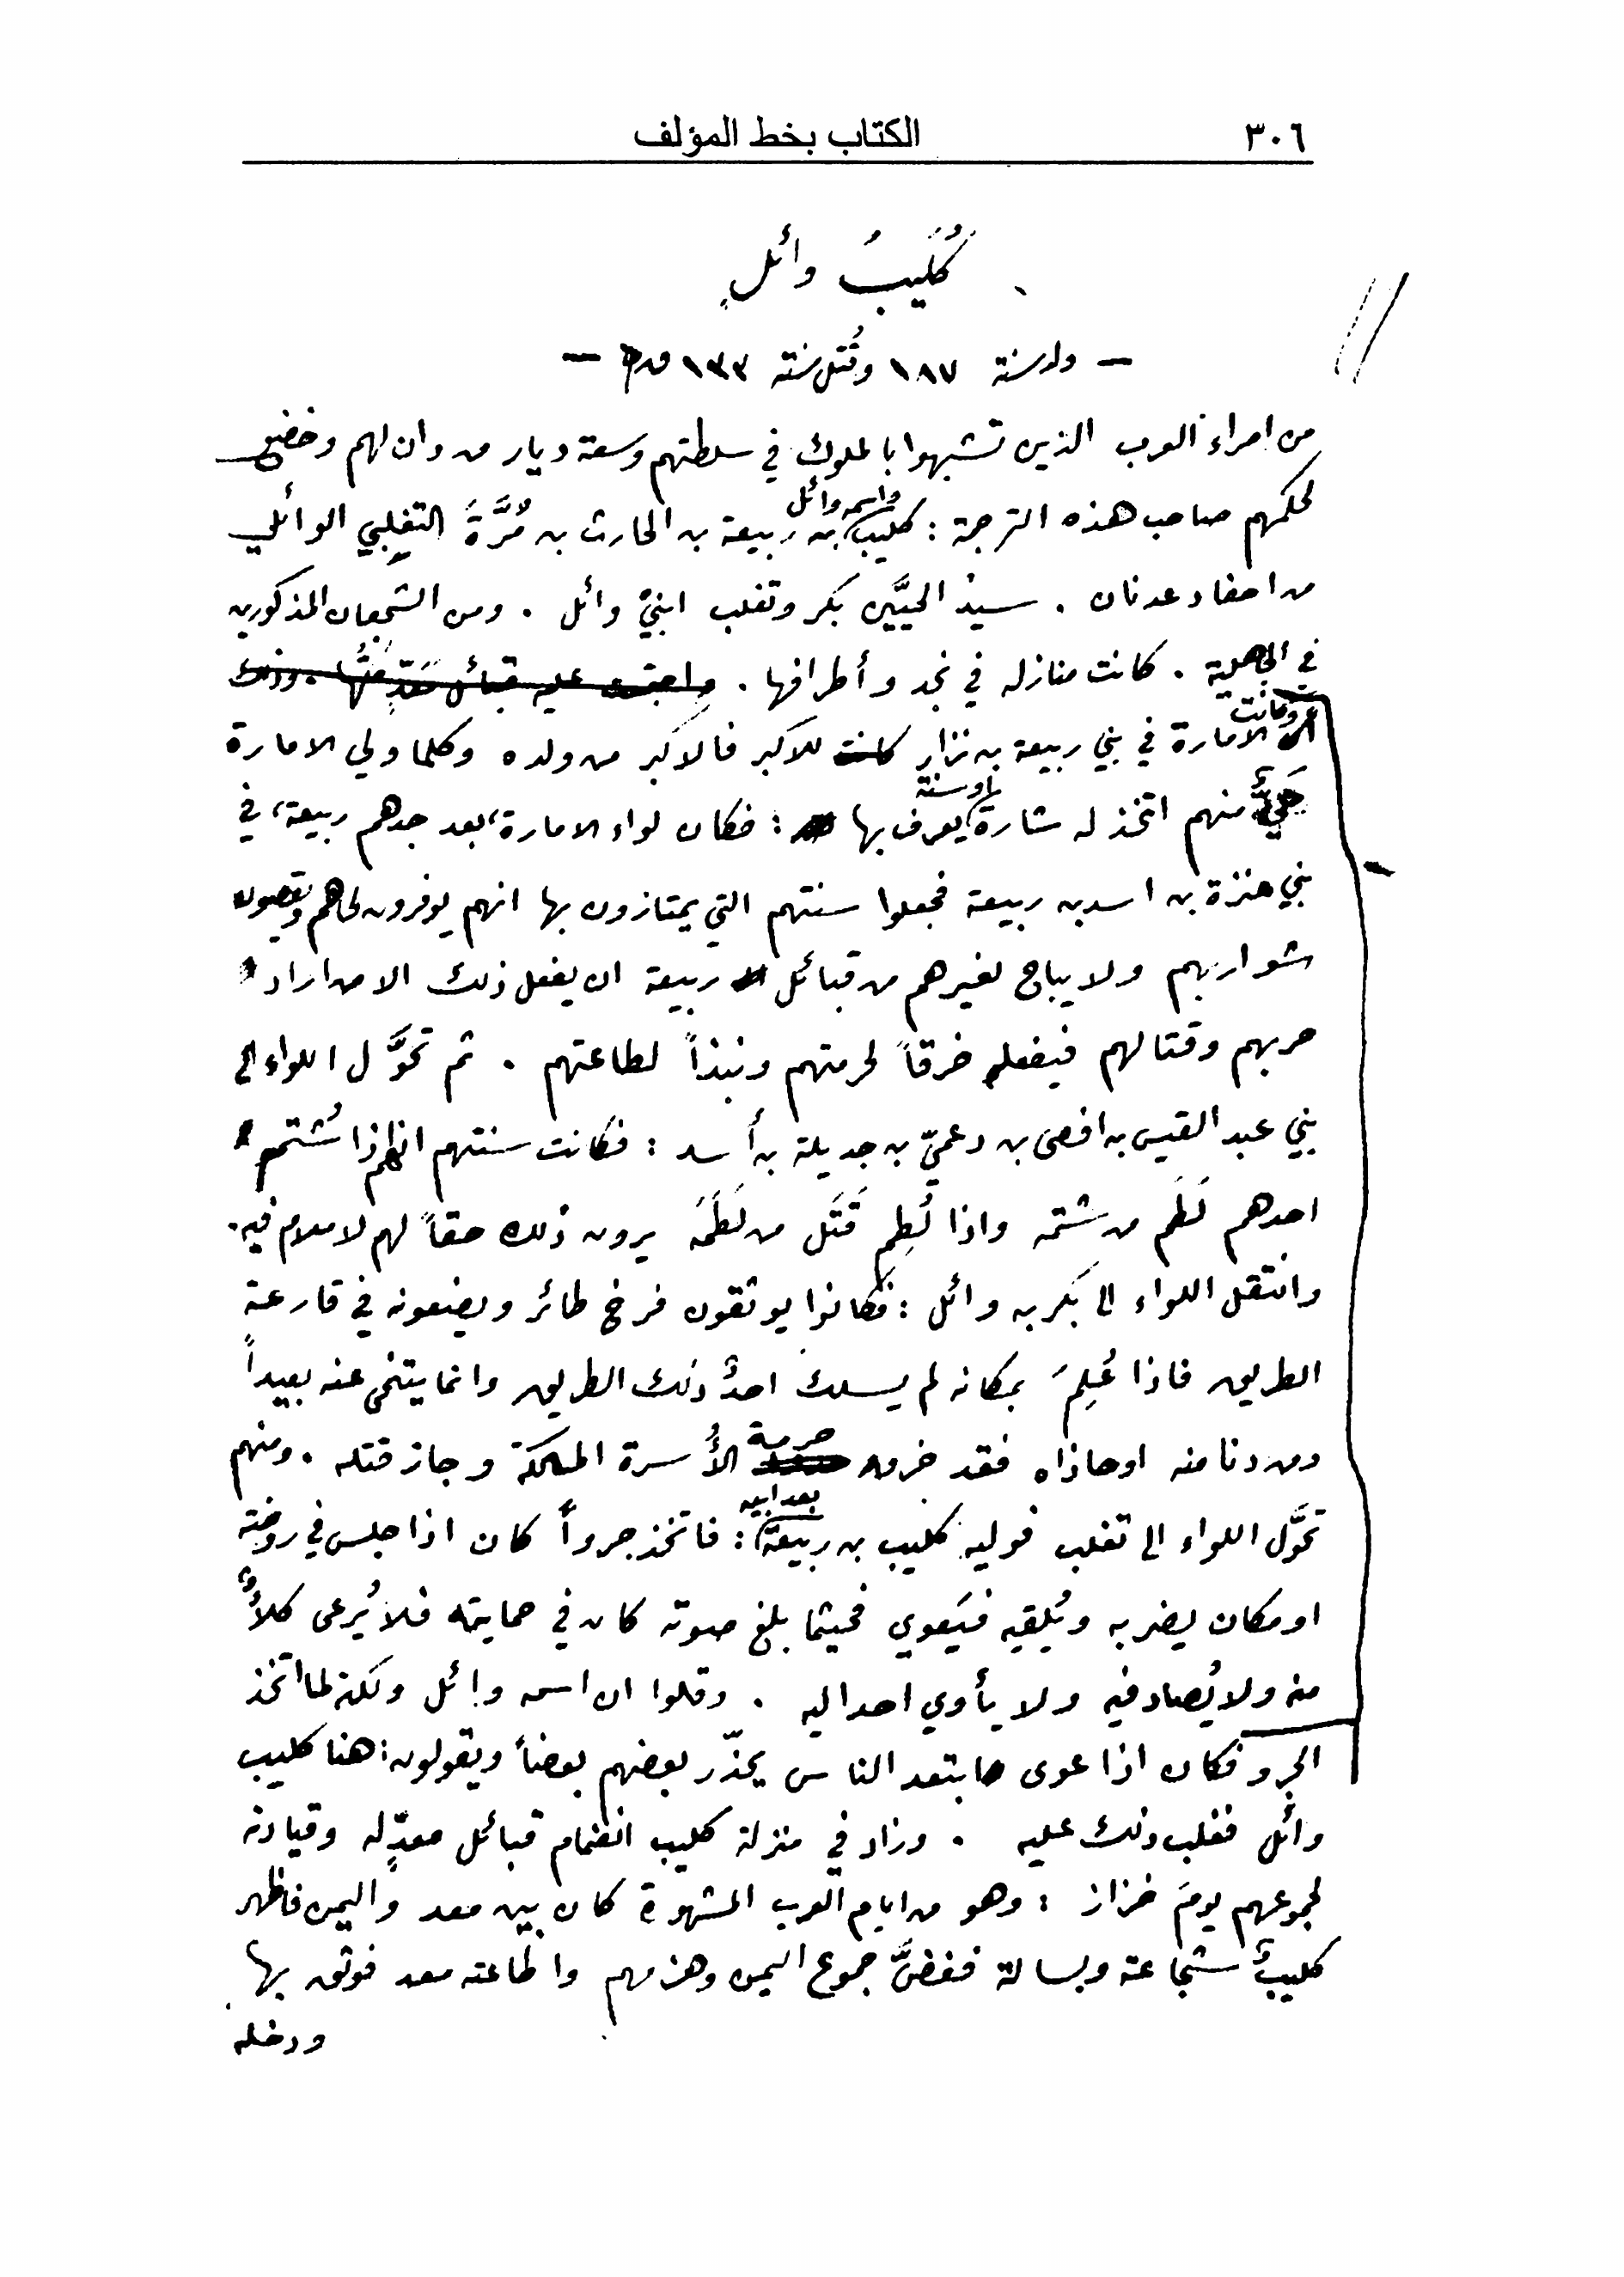 ٣٠٦ الكتاب بخط المؤلف
كُلَيبُ وائل
— ولد سنة ١٨٧ وقُتل سنة ١٣٣ ق م —
من امراء العرب الذين تشبهوا بالملوك في سلطتهم وسعة ديار من دان لهم وخضع
لحكمهم صاحب هذه الترجمة : كليب واسمه وائل بن ربيعة بن الحارث بن مُرَّةَ التغلبي الوائلي
من احفاد عدنان . سيد الحيَّين بكر وتغلب ابنيْ وائل . ومن الشجعان المذكورين
في الجاهلية . كانت منازله في نجد وأطرافها . واجتمعت عليه قبائل مَعَدٍّ كلُّها . وذلك
وكانت الامارة في بني ربيعة بن نزار كانت للاكبر فالاكبر من ولده وكلما ولي الامارة
حيٌّ منهم اتخذ له شارة او سنة يعرف بها : فكان لواء الامارة، بعد جدهم ربيعة، في
بني عنزة بن اسد بن ربيعة فجعلوا سنتهم التي يمتازون بها انهم يوفرون لحاهم ويقصون
شواربهم ولا يباح لغيرهم من قبائل ربيعة ان يفعل ذلك الا من اراد
حربهم وقتالهم فيفعله خرقاً لحرمتهم ونبذاً لطاعتهم . ثم تحوَّل اللواء الى
بني عبد القيس بن افصى بن دعميّ بن جديلة بن أسد : فكانت سنتهم انهم اذا شُتم
احدهم لَطَم من شتمه واذا لُطِم قَتَل من لَطَمَه يرون ذلك حقاً لهم لا ملام فيه .
وانتقل اللواء الى بكر بن وائل : فكانوا يوثقون فرخ طائر ويضعونه في قارعة
الطريق فاذا عُلِمَ بمكانه لم يسلك احدٌ ذلك الطريق وانما يتنحى عنه بعيداً
ومن دنا منه او حاذاه فقد خرق حرمة الأُسرة المالكة وجاز قتله . ومنهم
تحوَّل اللواء الى تغلب فوليه كليب بن ربيعة بعد ابيه : فاتخذ جرواً كان اذا جلس في روضة
او مكان يضربه ويُلقيه فيَعوي فحيثما بلغ صوته كان في حمايته فلا يُرعى كلأٌ
منه ولا يُصاد فيه ولا يأوي احد اليه . وقالوا ان اسمه وائل ولكنه لما اتخذ
الجرو فكان اذا عوى ابتعد الناس يحذّر بعضهم بعضاً ويقولون : هنا كليب
وائل فغلب ذلك عليه . وزاد في منزلة كليب انضمام قبائل معدٍّ له وقيادته
لجموعهم يومَ خزاز : وهو من ايام العرب المشهورة كان بين معد واليمن فاظهر
كليبٌ شجاعة وبسالة ففضَّ جموع اليمن وهزمهم واطاعته معد فوثق بها
ودخله